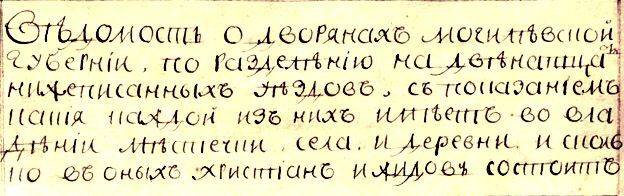 Вѣдомость о дворянахъ могилѣвской
губерніи, по разделѣнію на двѣнатцать
нижеписанныхъ уѣздовъ, съ показаніемъ
какія каждой изъ нихъ имѣетъ во вла
дѣніи мѣстечки, села, и деревни, и сколь
ко въ оныхъ христіанъ и жидовъ состоитъ